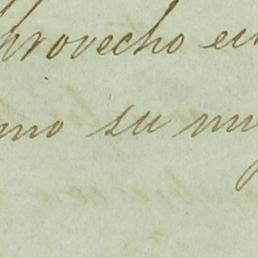 provecho en
mo su mu